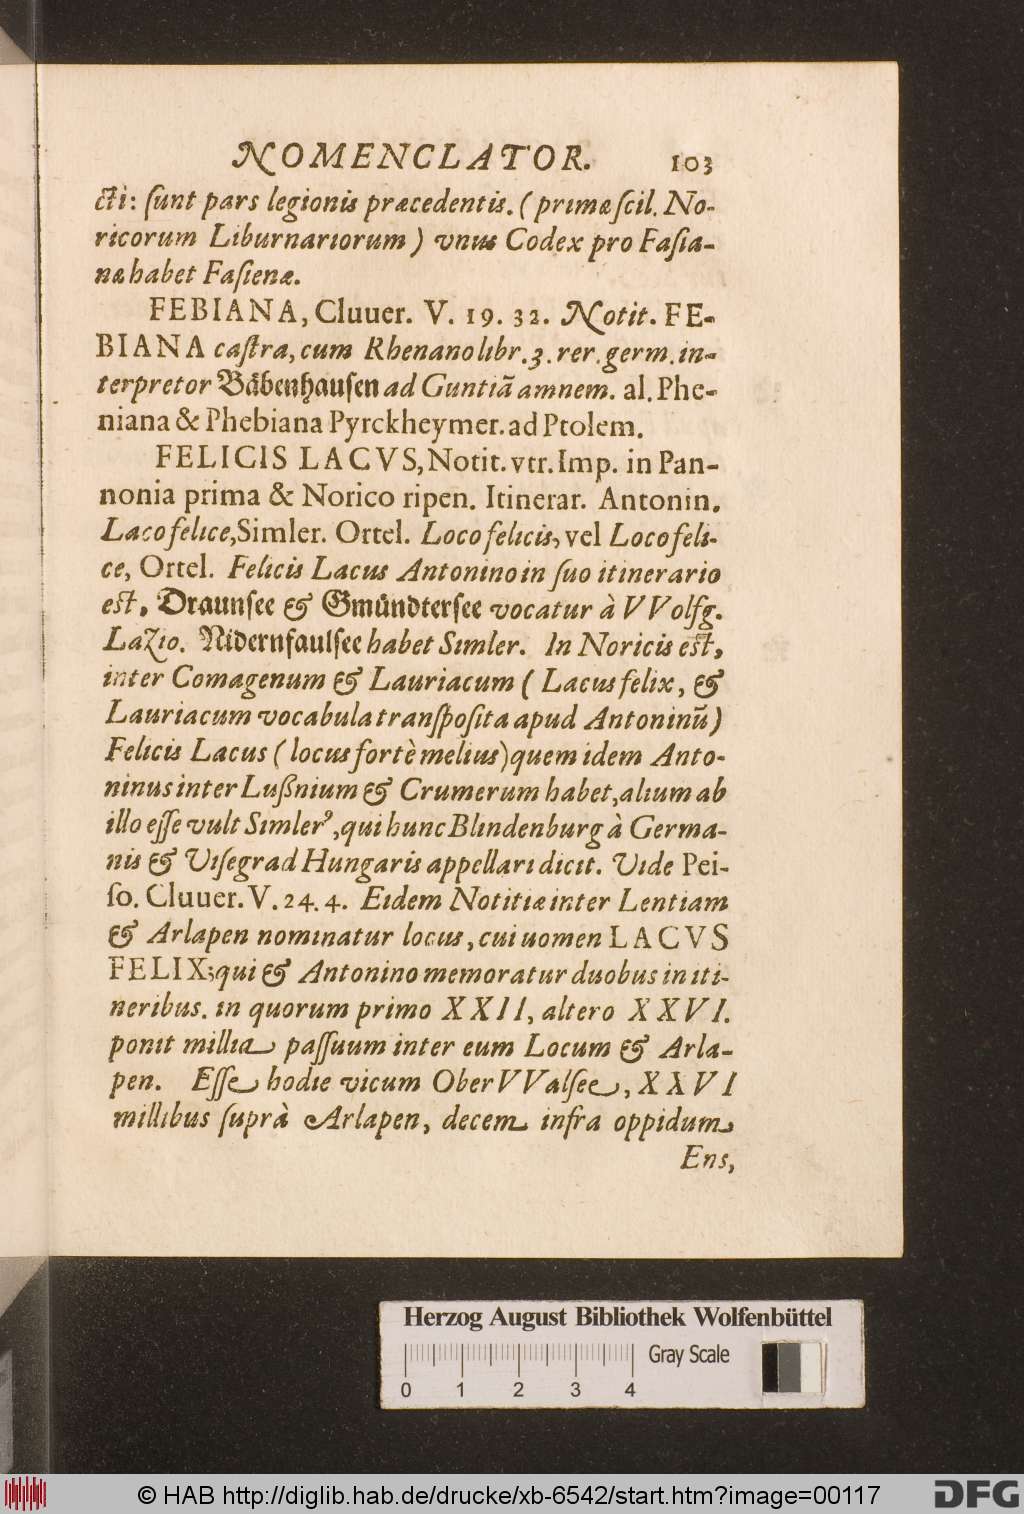 NOMENCLATOR. 103
cti: ſunt pars legionis præcedentis. (primæ ſcil. No-
ricorum Liburnariorum) vnus Codex pro Faſia-
næ habet Faſienæ.
FEBIANA, Cluuer. V. 19. 32. Notit. FE-
BIANA caſtra, cum Rhenano libr. 3. rer. germ. in-
terpretor Bäbenhauſen ad Guntiã amnem. al. Phe-
niana & Phebiana Pyrckheymer. ad Ptolem.
FELICIS LACVS, Notit. vtr. Imp. in Pan-
nonia prima & Norico ripen. Itinerar. Antonin.
Laco felice, Simler. Ortel. Loco felicis, vel Loco feli-
ce, Ortel. Felicis Lacus Antonino in ſuo itinerario
eſt, Draunſee & Gmündterſee vocatur à VVolfg.
Lazio. Nidernfaulſee habet Simler. In Noricis eſt,
inter Comagenum & Lauriacum ( Lacus felix, &
Lauriacum vocabula tranſpoſita apud Antoninũ)
Felicis Lacus (locus fortè melius) quem idem Anto-
ninus inter Lußnium & Crumerum habet, alium ab
illo eſſe vult Simlerꝰ, qui hunc Blindenburg à Germa-
nis & Viſegrad Hungaris appellari dicit. Vide Pei-
ſo. Cluuer. V. 24. 4. Eidem Notitiæ inter Lentiam
& Arlapen nominatur locus, cui uomen LACVS
FELIX; qui & Antonino memoratur duobus in iti-
neribus. in quorum primo XXII, altero XXVI.
ponit millia paſſuum inter eum Locum & Arla-
pen. Eſſe hodie vicum Ober VValſee, XXVI
millibus ſuprà Arlapen, decem infra oppidum
Ens,
Herzog August Bibliothek Wolfenbüttel
Gray Scale
0 1 2 3 4
© HAB http://diglib.hab.de/drucke/xb-6542/start.htm?image=00117
DFG